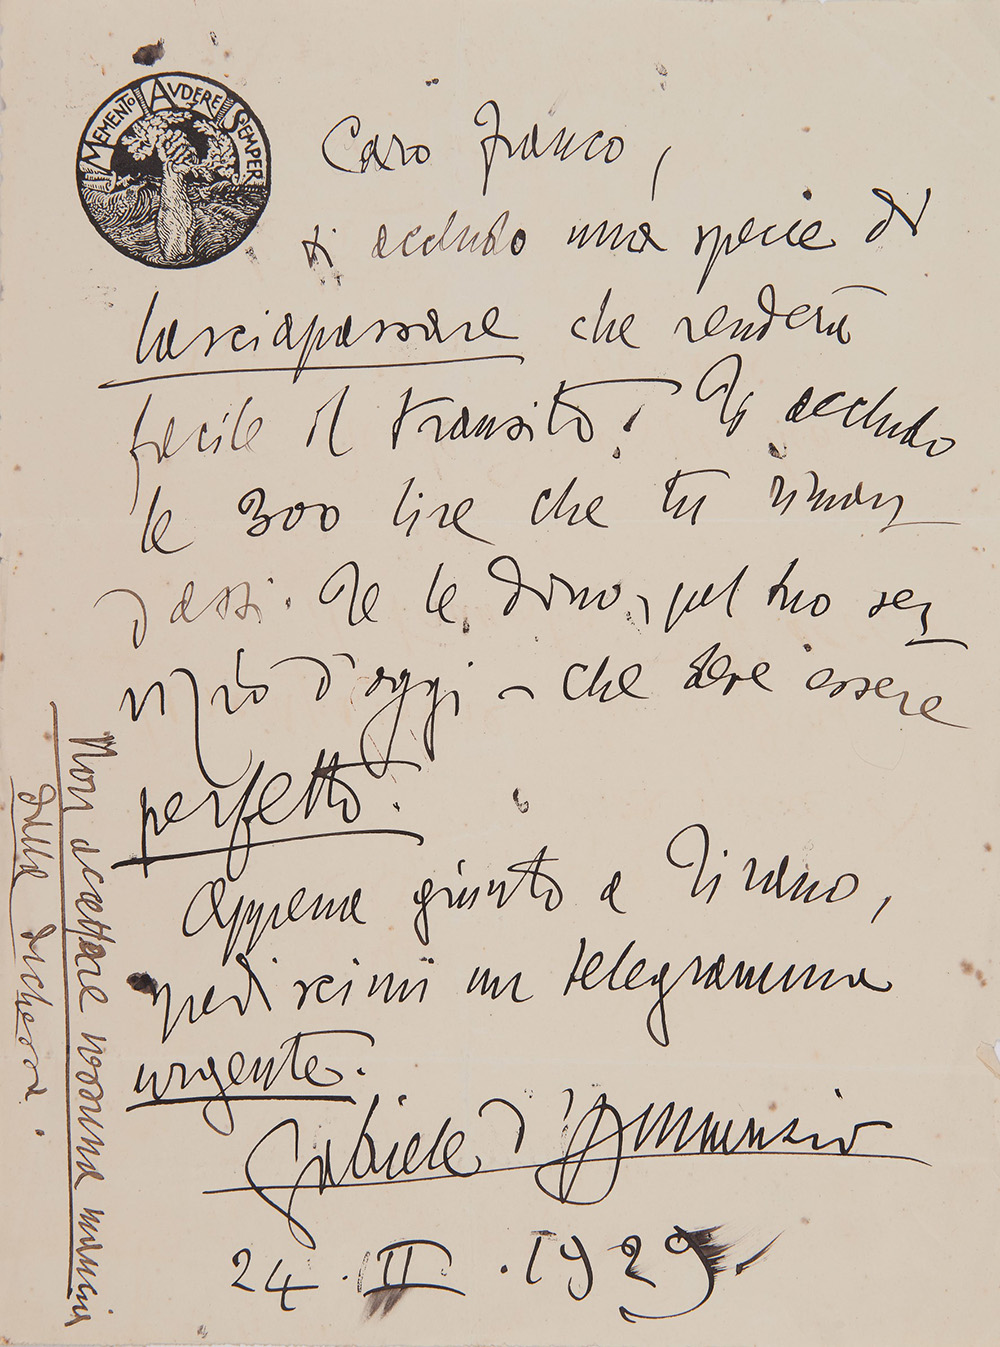 MEMENTO AVDERE SEMPER
Caro Franco,
ti accludo una specie di
lasciapassare che renderà
facile il transito. Ti accludo
le 300 lire che tu riman
dasti. Te le dono, pel tuo ser
vizio d'oggi – che deve essere
perfetto.
Appena giunto a Tirano,
spediscimi un telegramma
urgente.
Gabriele d'Annunzio
24. II. 1929.
Non accettare nessuna mancia
dalla